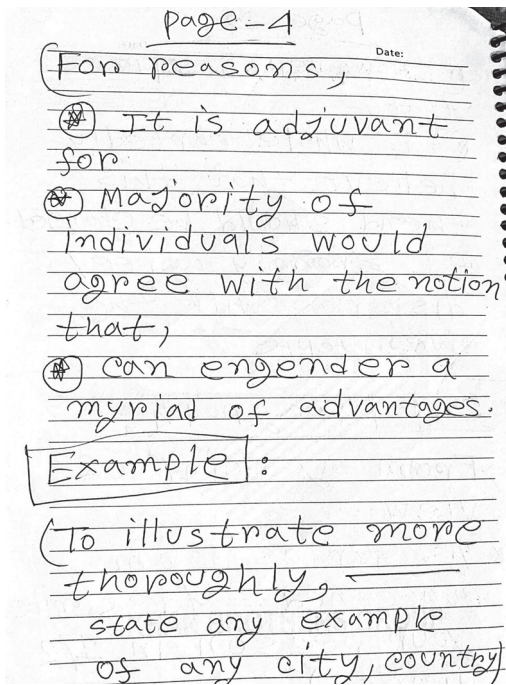 page-4
Date:
(For reasons,
It is adjuvant
for
Majority of
individuals would
agree with the notion
that,
can engender a
myriad of advantages.
Example:
(To illustrate more
thoroughly, ———
state any example
of any city, country)